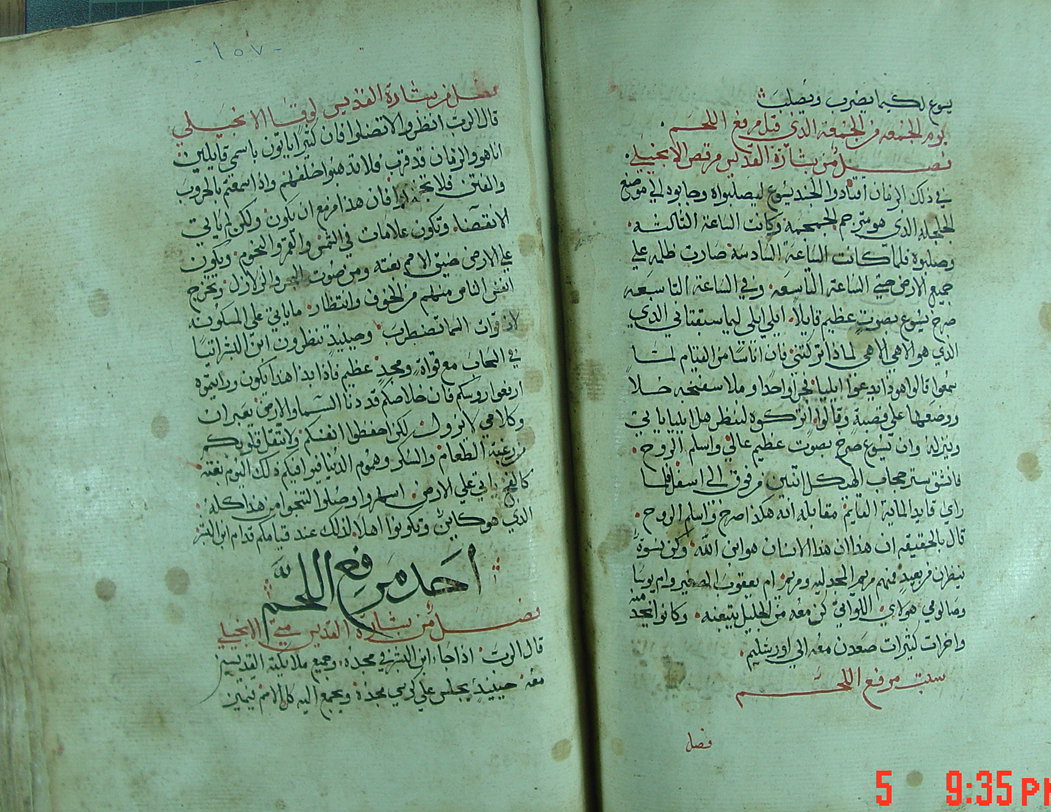 يسوع لكيما يضرب ويصلب
يوم الجمعه من الجمعة الذي قبل مرفع اللحم
فصل من بشارة القديس مرقص الانجيلي
في ذلك الزمان اقتادوا الجند يسوع ليصلبواه وجابوه الي موضع
الجلجله الذي هو مترجم الجمجمه وكانت الساعة الثالثه
وصلبوه فلما كانت الساعة السادسة صارت ظله علي
جميع الارض حتي الساعة التاسعه وفي الساعة التاسعه
صرخ يسوع بصوت عظيم قايلا ايلي ايلي ليما سبقتاني الذي
الذي هو الاهي الاهي لماذا تركتني فان اناسا من القيام لما
سمعوا قالوا هوذا يدعوا ايليا فجري واحد وملا سفنجه خلا
ووضعها علي قصبة وقالوا اتركوه لننظر هل ايليا ياتي
وينزله وان يسوع صرخ بصوت عظيم عالي واسلم الروح
فانشق ستر حجاب الهيكل اثنين من فوق الي اسفل فلما
راي قايد الماية القايم مقابله انه هكذا صرخ واسلم الروح
قال بالحقيقه ان هذا الانسان هو ابن الله وكن نسوة
ينظرن من بعيد فيهم مريم المجدليه ومريم ام يعقوب الصغير وام يوسا
وصالومي هولاي اللواتي كن معه من الجليل يتبعنه وكانوا يخد
منه
واخرات كثيرات صعدن معه الي اورشليم
سبت مرفع اللحم
فصل
-١٥٧-
فصل من بشارة القديس لوقا الانجيلي
قال الرب انظروا لا تضلوا فان كثيرا ياتون باسمي قايلين
انا هو والزمان قد قرب فلا تذهبوا خلفهم واذا سمعتم بالحروب
والفتن فلا تجزعوا فان هذا مزمع ان يكون ولكن لم ياتي
الانقضا وتكون علامات في الشمس والقمر والنجوم ويكون
علي الارض ضيق الامم بغته ومن صوت البحر والزلازل وتخرج
انفس الناس منهم من الخوف وانتظار ما ياتي علي المسكونه
لان قوات السما تضطرب وحينيذ تنظرون ابن البشر اتيا
في السحاب مع قوات ومجد عظيم فاذا بدا هذا يكون
ارفعوا روسكم فان خلاصكم قد دنا السما والارض يعبران
وكلامي لا يزول لكن احفظوا انفسكم ولا تثقل قلوبكم
من رغبة الطعام والسكر وهموم الدنيا فيوافيكم ذلك اليوم بغته
كالفخ ياتي علي الارض اسهروا وصلوا لتنجوا من هذا كله
الذي هو كاين وتكونوا اهلا لذلك عند قيامكم قدام ابن البشر
احد مرفع اللحم
فصل من بشارة القديس متي الانجيلي
قال الرب اذا جا ابن البشر في مجده وجميع ملايكته القديسين
معه حينيذ يجلس علي كرسي مجده ويجمع اليه كل الامم فيميز
5 9:35 PM